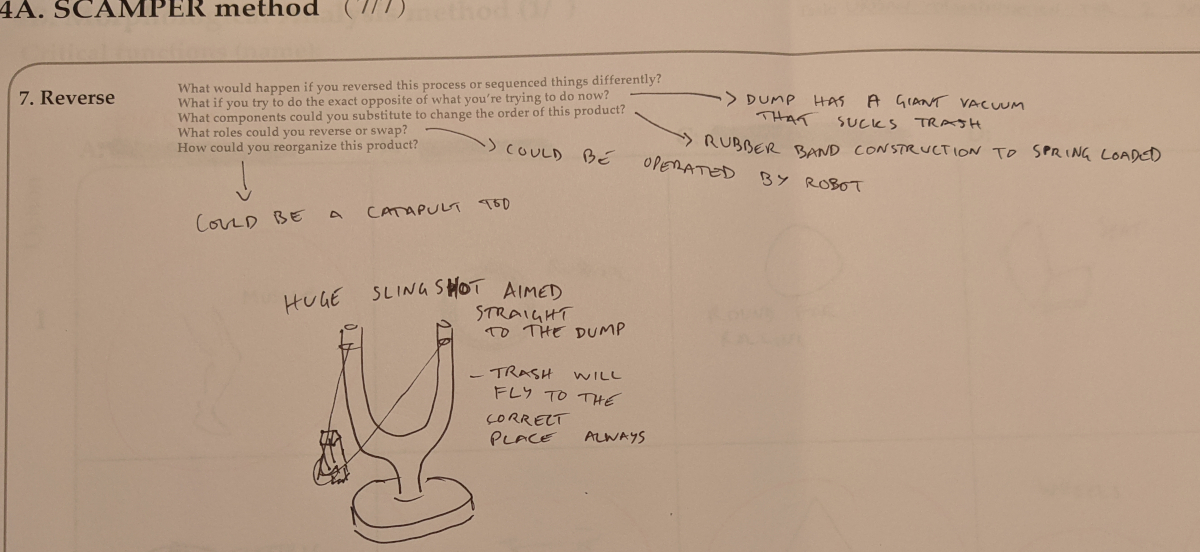 4A. SCAMPER method (7/7)
7. Reverse
What would happen if you reversed this process or sequenced things differently?
What if you try to do the exact opposite of what you're trying to do now?
What components could you substitute to change the order of this product?
What roles could you reverse or swap?
How could you reorganize this product?
DUMP HAS A GIANT VACUUM
THAT SUCKS TRASH
RUBBER BAND CONSTRUCTION TO SPRING LOADED
COULD BE OPERATED BY ROBOT
COULD BE A CATAPULT TOO
HUGE SLINGSHOT AIMED
STRAIGHT
TO THE DUMP
- TRASH WILL
FLY TO THE
CORRECT
PLACE ALWAYS